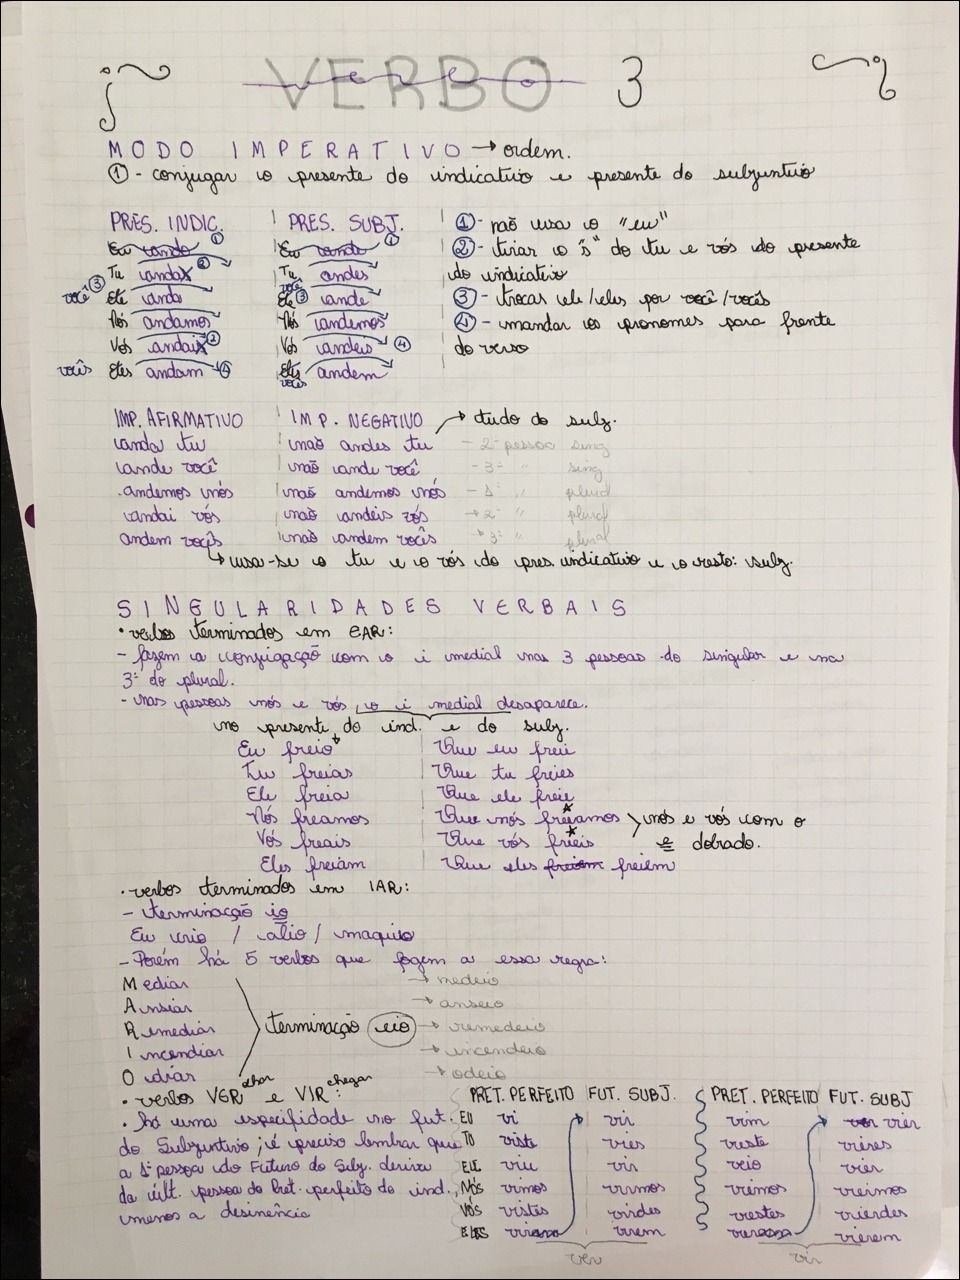 VERBO 3
MODO IMPERATIVO → ordem.
① - conjugar o presente do indicativo e presente do subjuntivo
PRES. INDIC. PRES. SUBJ. ① - não usa o "eu"
Eu ando ① Eu ande ① ② - tirar o "s" do tu e vós do presente
Tu andas ② Tu andes do indicativo
você ③ Ele anda Ele ③ ande ③ - trocas ele/eles por você/vocês
Nós andamos Nós andemos ④ - mandar os pronomes para frente
Vós andais ② Vós andeis ④ do verso
vocês Eles andam ④ Eles vocês andem
IMP. AFIRMATIVO IMP. NEGATIVO → tudo do subj.
anda tu não andes tu - 2ª pessoa sing
ande você não ande você - 3ª " sing
andemos nós não andemos nós - 1ª " plural
andai vós não andeis vós → 2ª " plural
andem vocês não andem vocês → 3ª " plural
↳ usa-se o tu e o vós do pres. indicativo e o resto: subj.
SINGULARIDADES VERBAIS
• verbos terminados em EAR:
- fazem a conjigação com o i medial nas 3 pessoas do singular e na
3ª do plural.
- nas pessoas nós e vós, o i medial desaparece.
no presente do ind. e do subj.
Eu freio Que eu freie
Tu freias Que tu freies
Ele freia Que ele freie
Nós freamos Que nós freiamos * nós e vós com o
Vós freais Que vós frieis * e dobrado.
Eles freiam Que eles freiem freiem
• verbos terminados em IAR:
- terminação io
Eu crio / alio / maquio
- Porém há 5 verbos que fogem a essa regra:
Mediar → medeio
Ansiar → anseio
Remediar terminação eio → remedeio
Incendiar → incendeio
Odiar → odeio
• verbos VER olhar e VIR chegar :
PRET. PERFEITO FUT. SUBJ. PRET. PERFEITO FUT. SUBJ
• há uma especifidade no fut. EU vi vir vim vier
do Subjuntivo; é preciso lembrar que TU viste vires vieste vieres
a 1ª pessoa do Futuro do Subj. deriva ELE viu vir veio vier
da últ. pessoa do Pret. perfeito do ind., NÓS vimos virmos viemos viermos
menos a desinência VÓS vistes virdes viestes vierdes
ELES viram virem vieram vierem
ver vir